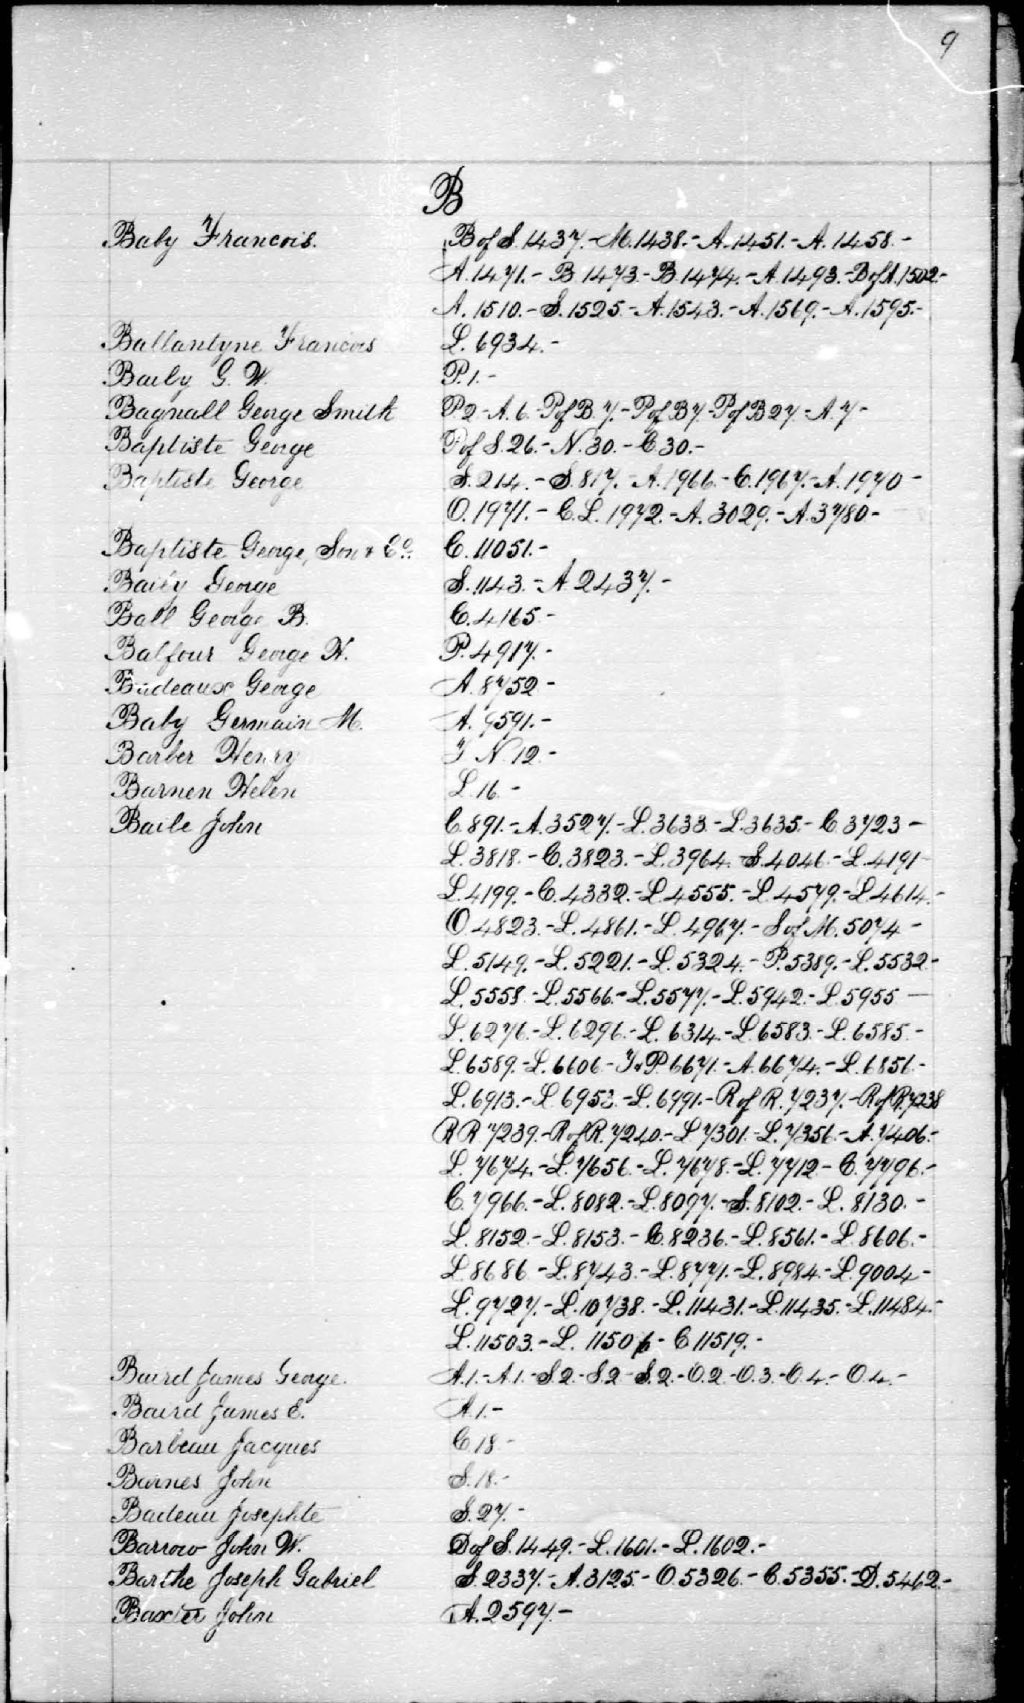 9
B
Baby Francois. B of S. 1437.-M. 1438.-A. 1451.-A. 1458.-
A. 1471.-B. 1473.-B. 1474.-A. 1493.-B of A. 1502-
A. 1510.-S. 1525.-A. 1543.-A. 1569.-A. 1595.-
Ballantyne Francois L. 6934.-
Baily G. W. P. 1.-
Bagnall George Smith P. 2-A. 6.-P of B. 7.-P of B 7.-P of B 27-A. 7-
Baptiste George P of S. 26.-N. 30.-C. 30.-
Baptiste George S. 214.-S. 817.-A. 1966.-C. 1967.-A. 1970-
O. 1971.-C. L. 1972.-A. 3029.-A. 3780.-
Baptiste George, Son & Co. C. 11051.-
Baily George S. 1143.-A 2437.-
Ball George B. C. 4165-
Balfour George H. P. 4917.-
deaux George A. 8752-
Baby Germain M. A. 9591.-
Barber Henry N. 12.-
Barnen Helen L. 16.-
Baile John C. 891.-A. 3527.-L. 3633.-L. 3635.-C. 3723-
L. 3818.-C. 3823.-L. 3964.-S. 4046.-L. 4191-
L. 4199.-C. 4332.-L. 4555.-L. 4579.-L. 4614.-
O. 4823.-L. 4861.-L. 4967.-S of M. 5074-
L. 5149.-L. 5221.-L. 5324.-P. 5389.-L. 5532-
L. 5558.-L. 5566.-L. 5577.-L. 5942.-L. 5955-
L. 6276.-L. 6296.-L. 6314.-L. 6583.-L. 6585.-
L. 6589.-L. 6606-P 6671.-A. 6674.-L. 6856.-
L. 6913.-L. 6953.-L. 6991.-R of R. 7237.-R of R 7238
R R 7239.-R of R. 7240.-L 7301.-L. 7356.-A. 7406.-
L. 7674.-L. 7656.-L. 7678.-L. 7712-C. 7796.-
C. 7966.-L. 8082.-L. 8097.-S. 8102.-L. 8130.-
L. 8152.-L. 8153.-C. 8236.-L. 8561.-L. 8606.-
L. 8686.-L. 8743.-L. 8771.-L. 8984.-L. 9004-
L. 9727.-L. 10738.-L. 11431.-L. 11435.-L. 11484.-
L. 11503.-L. 11506-C 11519.-
Baird James George. A. 1.-A. 1.-S. 2.-S. 2-S. 2.-O. 2.-O. 3.-O. 4.-O. 4.-
Baird James E. A. 1.-
Barbeau Jacques C. 18-
Barnes John S. 18.-
Badeau Josephte S. 27.-
Barrow John W. D of S. 1449.-L. 1601.-L. 1602.-
Barthe Joseph Gabriel S. 2337.-A. 3125.-O. 5326.-C. 5355.-D. 5462-
Baxter John A. 2597.-